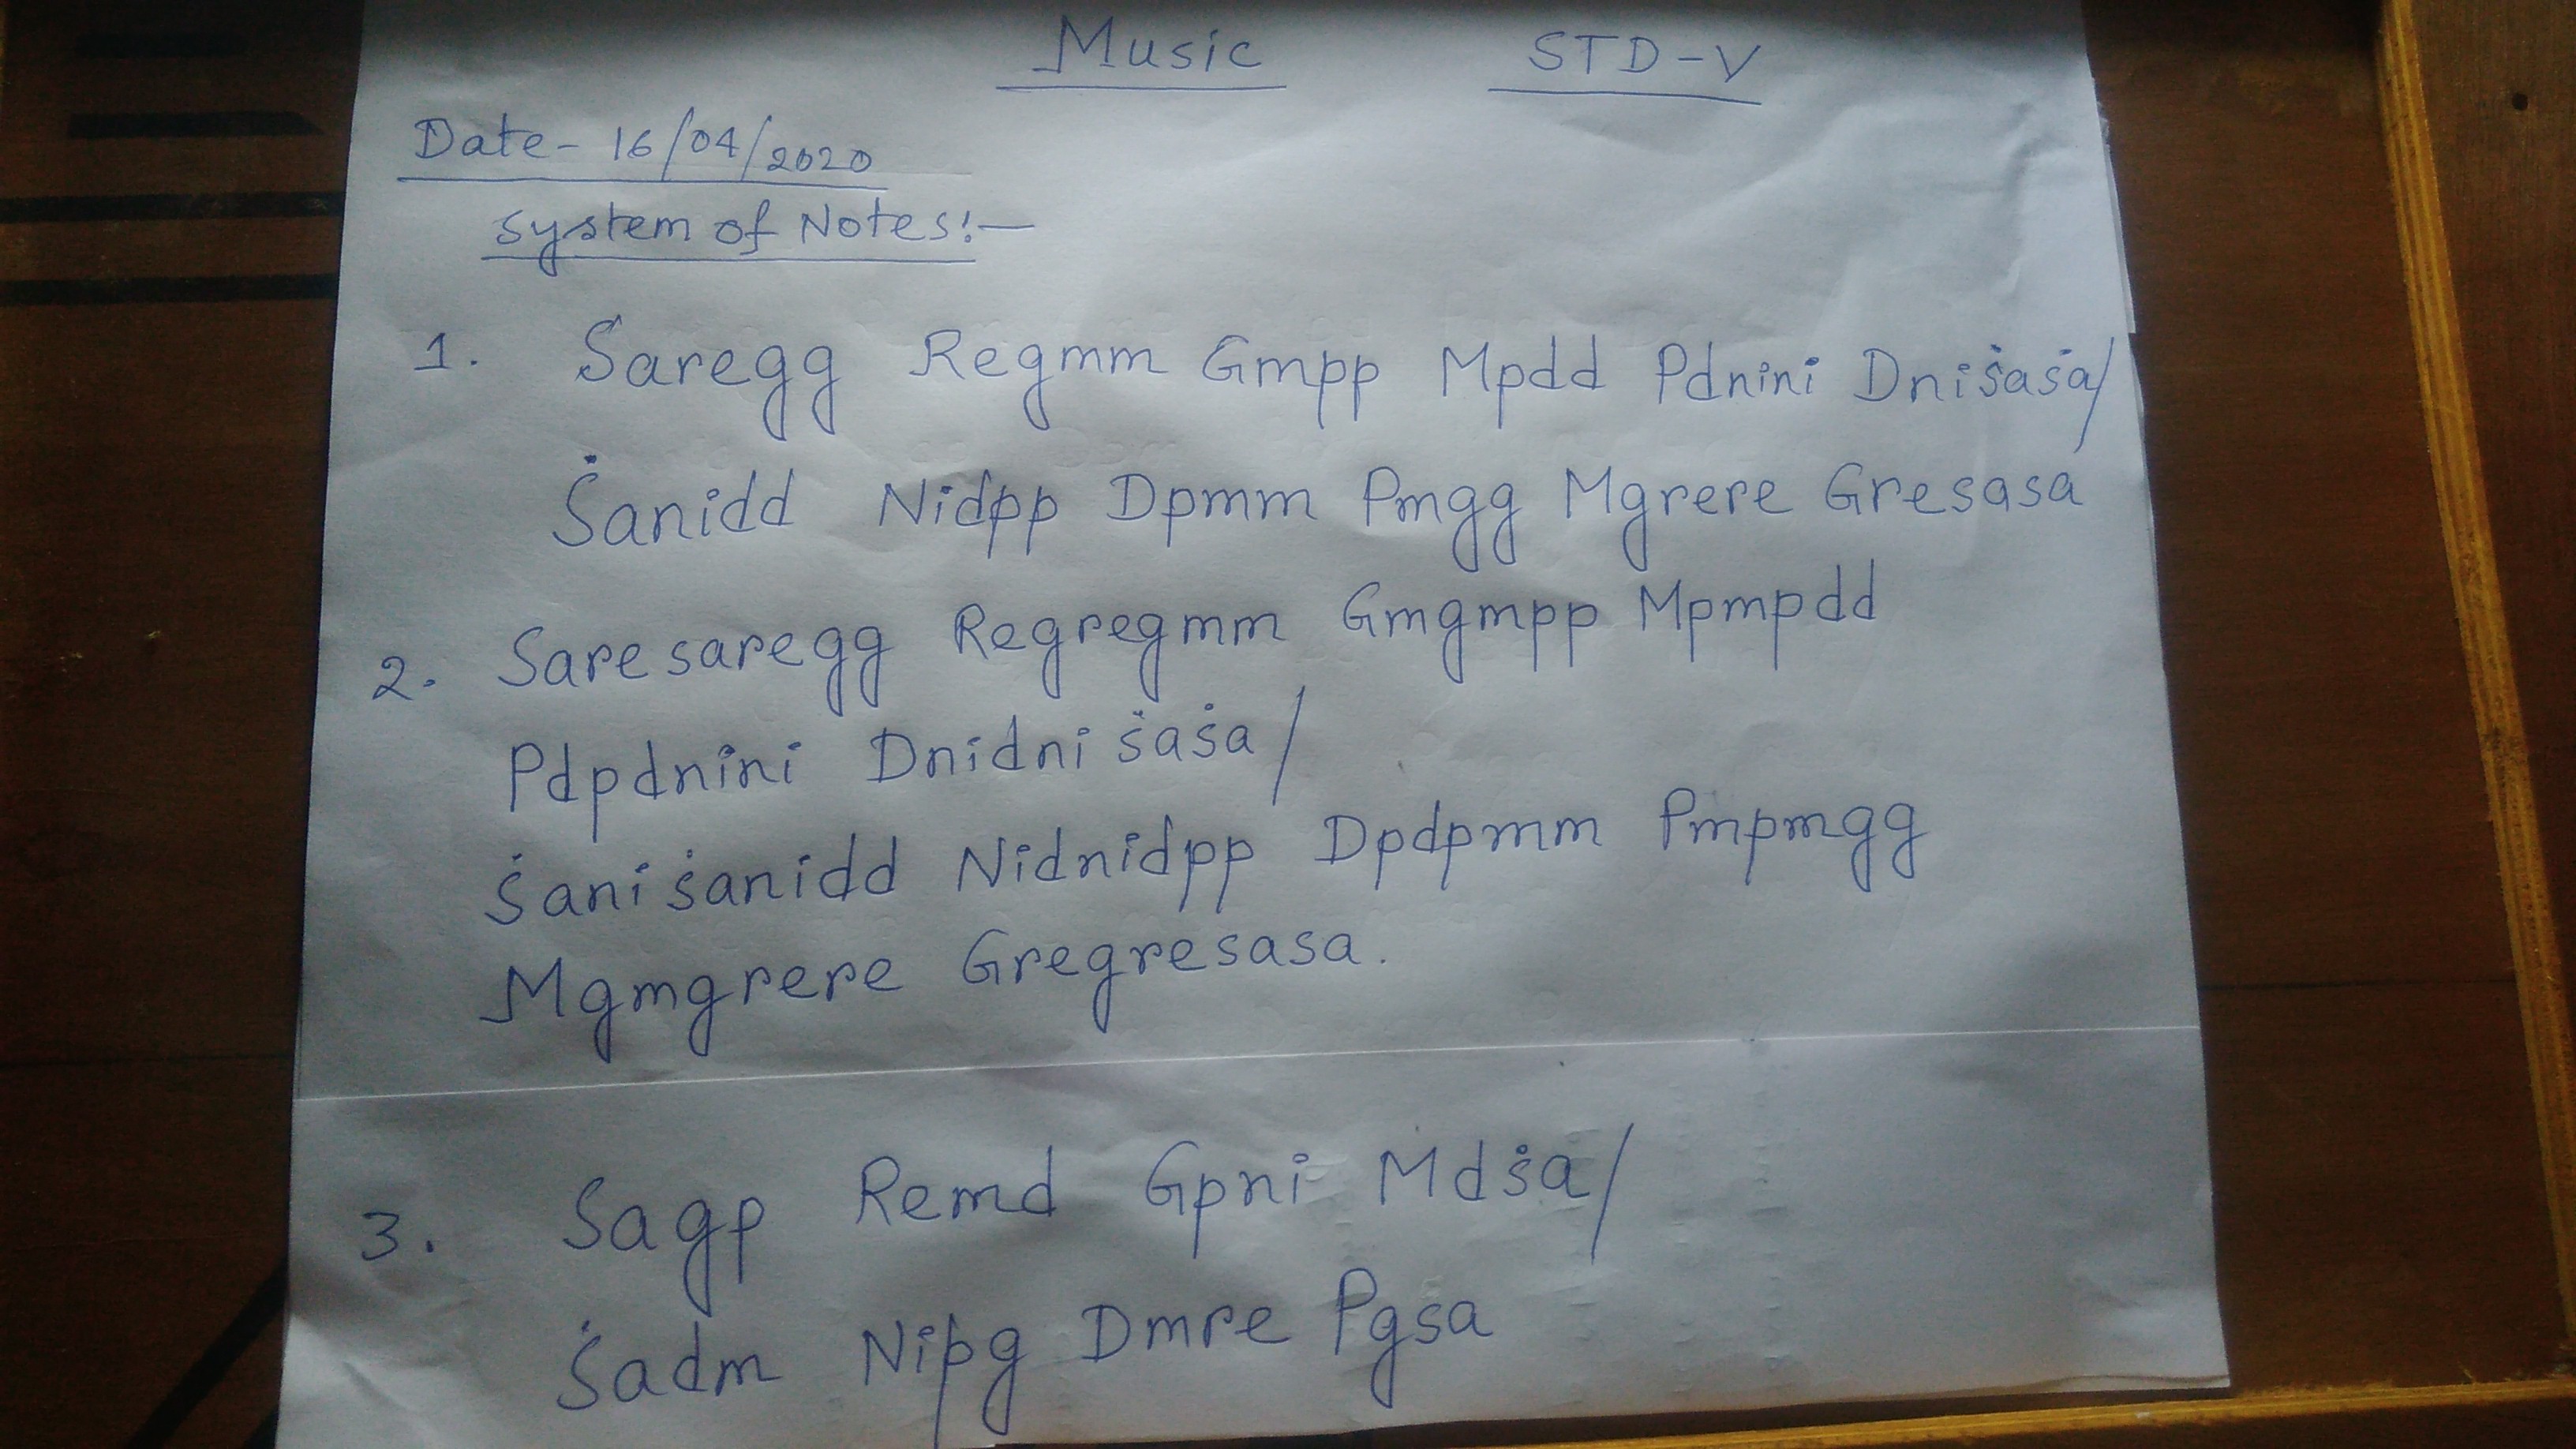 Music STD-V
Date- 16/04/2020
System of Notes:-
1. Saregg Regmm Gmpp Mpdd Pdnini Dniṡaṡa/
Ṡanidd Nidpp Dpmm Pmgg Mgrere Gresasa
2. Saresaregg Regregmm Gmgmpp Mpmpdd
Pdpdnini Dnidni ṡaṡa/
Ṡaniṡanidd Nidnidpp Dpdpmm Pmpmgg
Mgmgrere Gregresasa.
3. Sagp Remd Gpni Mdṡa/
Ṡadm Nipg Dmre Pgsa